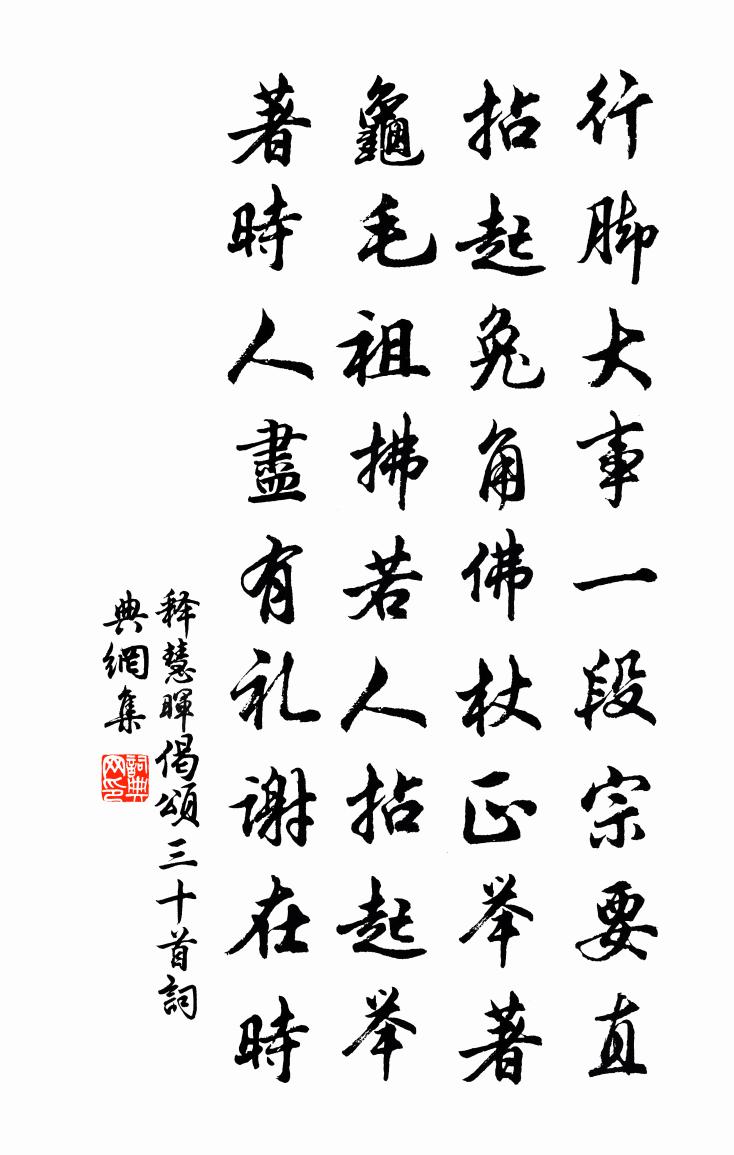 行脚大事一段宗要直
拈起兔角佛杖正举著
龜毛祖拂若人拈起举
著時人盡有礼谢在時
释慧暉偈頌三十首詞
典網集
詞典
网印